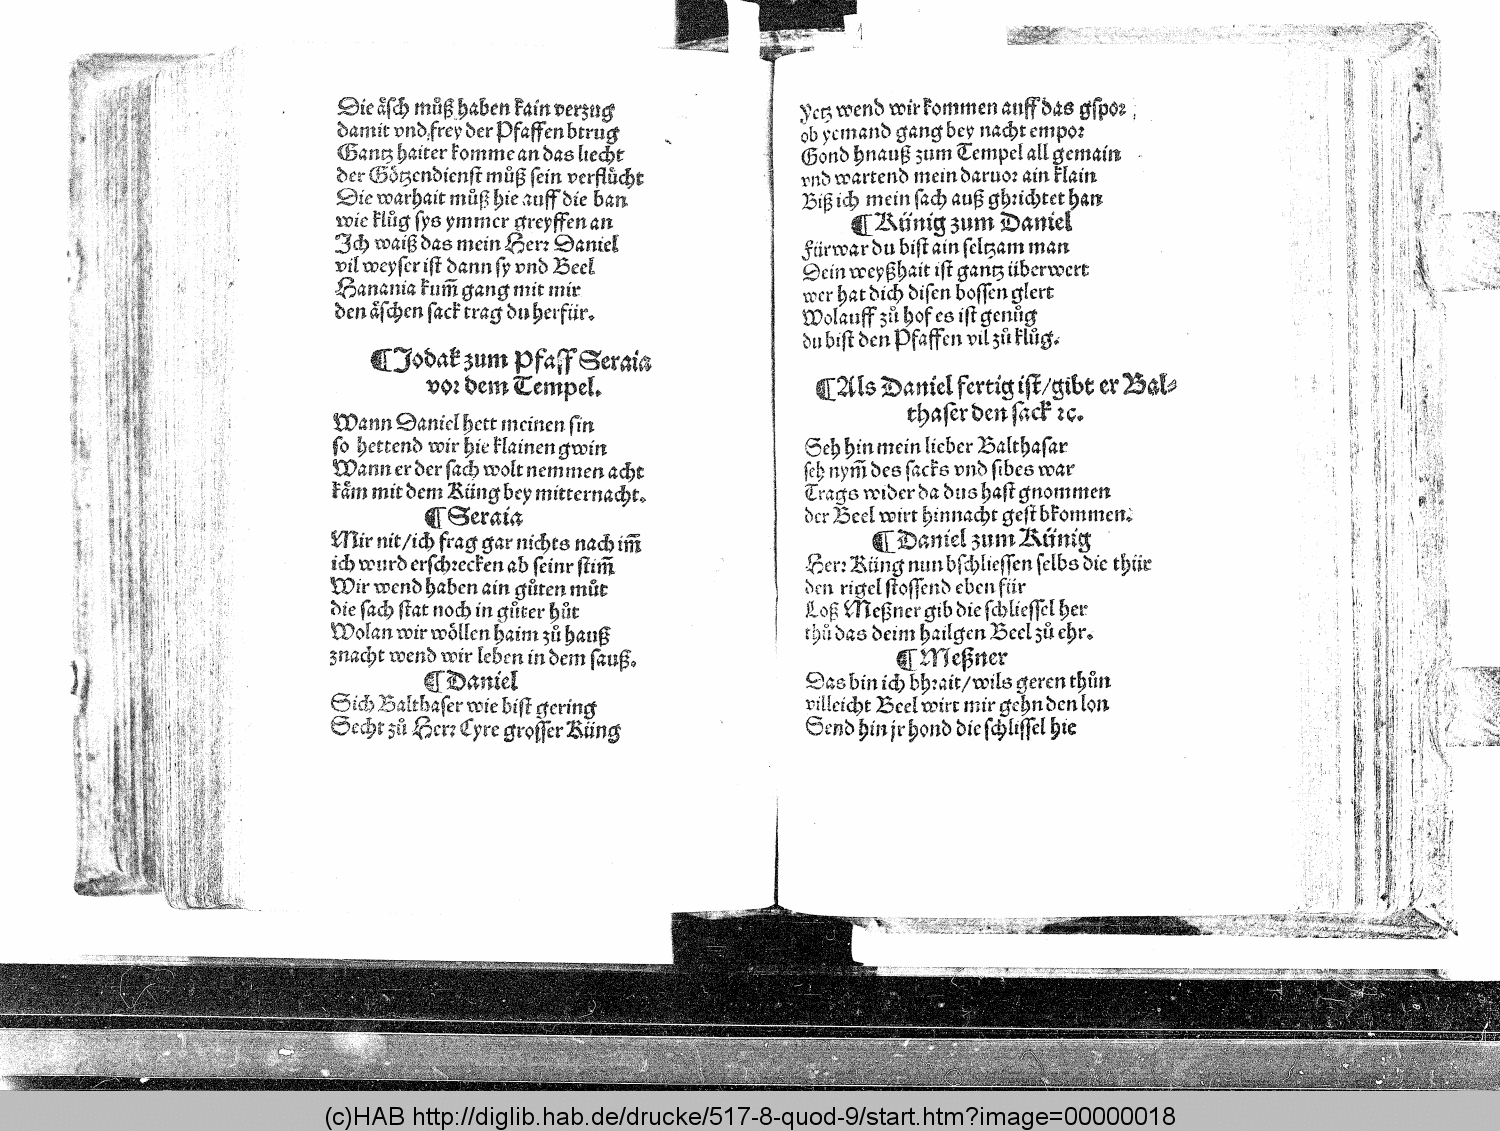 Die aͤsch muͦß haben kain verzug
damit vnd frey der Pfaffen btrug
Gantz haiter komme an das liecht
der Goͤtzendienst muͦß sein verfluͦcht
Die warhait muͦß hie auff die ban
wie kluͦg sys ymmer greyffen an
Ich waiß das mein Herr Daniel
vil weyser ist dann sy vnd Beel
Hanania kum̄ gang mit mir
den aͤschen sack trag du herfür.
¶ Jodak zum Pfaff Seraia
vor dem Tempel.
Wann Daniel hett meinen sin
so hettend wir hie klainen gwin
Wann er der sach wolt nemmen acht
kaͤm mit dem Küng bey mitternacht.
¶ Seraia
Mir nit/ich frag gar nichts nach im̄
ich wurd erschrecken ab seinr stim̄
Wir wend haben ain guͦten muͦt
die sach stat noch in guͦter huͦt
Wolan wir woͤllen haim zuͦ hauß
znacht wend wir leben in dem sauß.
¶ Daniel
Sich Balthaser wie bist gering
Secht zuͦ Herr Cyre grosser Küng
Yetz wend wir kommen auff das gspor
ob yemand gang bey nacht empor
Gond hnauß zum Tempel all gemain
vnd wartend mein daruor ain klain
Biß ich mein sach auß ghrichtet han
¶ Künig zum Daniel
Fürwar du bist ain seltzam man
Dein weyßhait ist gantz überwert
wer hat dich disen bossen glert
Wolauff zuͦ hof es ist genuͦg
du bist den Pfaffen vil zuͦ kluͦg.
¶ Als Daniel fertig ist/gibt er Bal⸗
thaser den sack ꝛc.
Seh hin mein lieber Balthasar
seh nym̄ des sacks vnd sibes war
Trags wider da dus hast gnommen
der Beel wirt hinnacht gest bkommen.
¶ Daniel zum Künig
Herr Küng nun bschliessen selbs die thür
den rigel stossend eben für
Loß Meßner gib die schliessel her
thuͦ das deim hailgen Beel zuͦ ehr.
¶ Meßner
Das bin ich bhrait/wils geren thuͦn
villeicht Beel wirt mir gehn den lon
Send hin jr hond die schlissel hie
(c)HAB http://diglib.hab.de/drucke/517-8-quod-9/start.htm?image=00000018